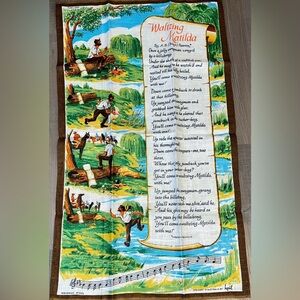 Waltzing
Matilda
Once a jolly swagman camped
by a billabong,
Under the shade of a coolibah tree,
And he sang as he watched and
waited till his billy boiled,
You'll come a-waltzing Matilda
with me!
Down came a jumbuck to drink
at that billabong,
Up jumped the swagman and
grabbed him with glee,
And he sang as he shoved that
jumbuck in his tucker-bag,
You'll come a-waltzing Matilda
with me!
Up rode the squatter mounted on
his thoroughbred,
Down came the troopers, one, two,
three,
Where's the jolly jumbuck you've
got in your tucker-bag?
You'll come a-waltzing Matilda,
with me!
Up jumped the swagman, sprang
into the billabong,
You'll never take me alive, said he,
And his ghost may be heard as
you pass by the billabong,
You'll come a-waltzing Matilda,
with me!